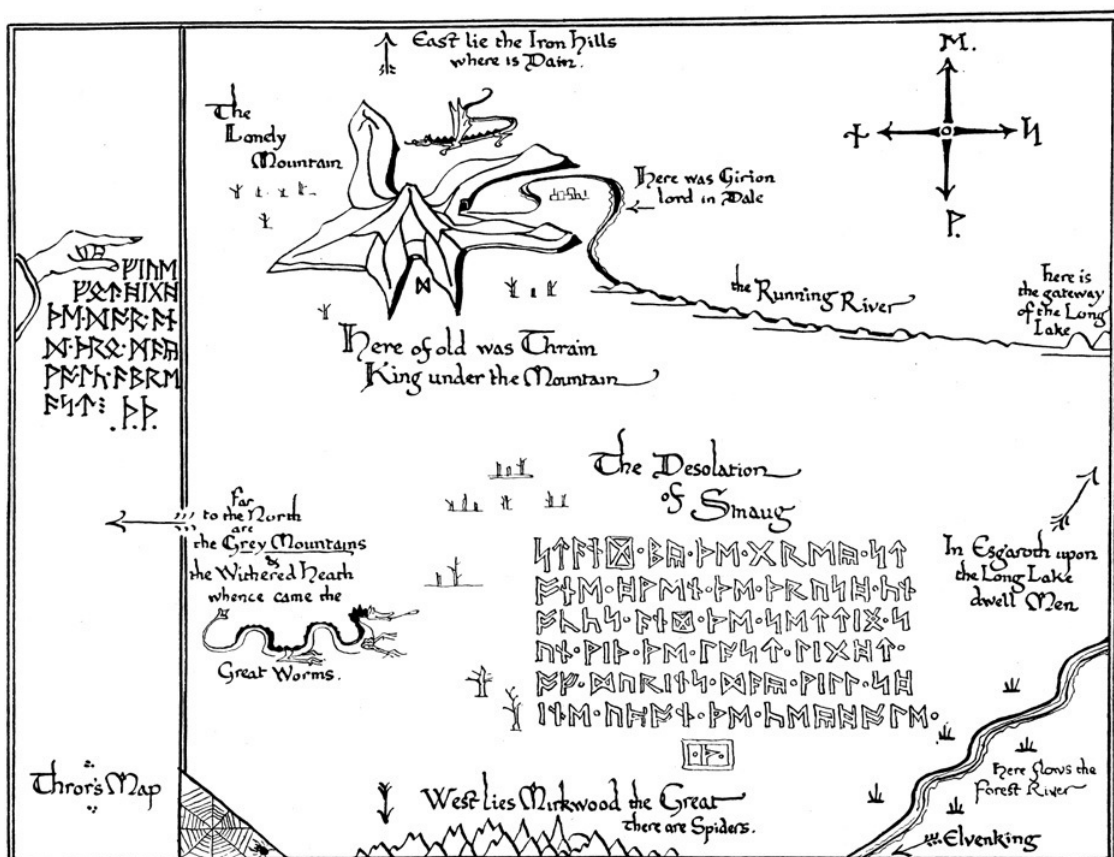 East lie the Iron Hills
where is Dain.
The
Lonely
Mountain
Here was Girion
lord in Dale
ᛖ.
ᚾ
ᛋ
ᚹ.
ᛞ
the Running River
Here is
the gateway
of the Long
Lake
Here of old was Thrain
King under the Mountain
ᚠᛁᚢᛖ
ᚠᛟᛏ᛫ᚻᛁᚷᚻ
ᚦᛖ᛫ᛞᚩᚱ᛫ᚪᚾ
ᛞ᛫ᚦᚱᛟ᛫ᛗᚪᚣ
ᚹᚪᛚᚳ᛫ᚪᛒᚱᛖ
ᚪᛋᛏ⁝ ᚦ᛫ᚦ᛫
The Desolation
of Smaug
Far
to the North
are
the Grey Mountains
&
the Withered Heath
whence came the
Great Worms.
ᛋᛏᚪᚾᛞ᛫ᛒᚣ᛫ᚦᛖ᛫ᚷᚱᛖᚣ᛫ᛋᛏ
ᚩᚾᛖ᛫ᚻᚹᛖᚾ᛫ᚦᛖ᛫ᚦᚱᚢᛋᚻ᛫ᚳᚾ
ᚩᚳᚳᛋ᛫ᚪᚾᛞ᛫ᚦᛖ᛫ᛋᛖᛏᛏᛁᛝ᛫ᛋ
ᚢᚾ᛫ᚹᛁᚦ᛫ᚦᛖ᛫ᛚᚪᛋᛏ᛫ᛚᛁᚷᚻᛏ᛫
ᚩᚠ᛫ᛞᚢᚱᛁᚾᛋ᛫ᛞᚪᚣ᛫ᚹᛁᛚᛚ᛫ᛋᚻ
ᛁᚾᛖ᛫ᚢᛈᚩᚾ᛫ᚦᛖ᛫ᚳᛖᚣᚻᚩᛚᛖ᛫
In Esgaroth upon
the Long Lake
dwell Men
Here flows the
Forest River
Elvenking
Thror's Map
West lies Mirkwood the Great
there are Spiders.